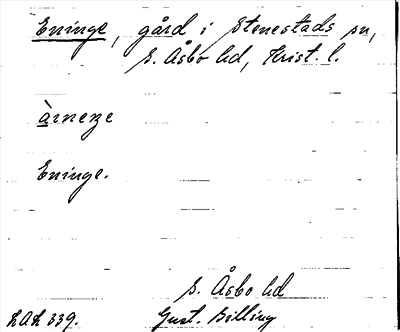 Eninge, gård i Stenestads sn,
S. Åsbo hd, Krist. l.
àrneze
Eninge.
S. Åsbo hd
LAL 339. Gust. Billing